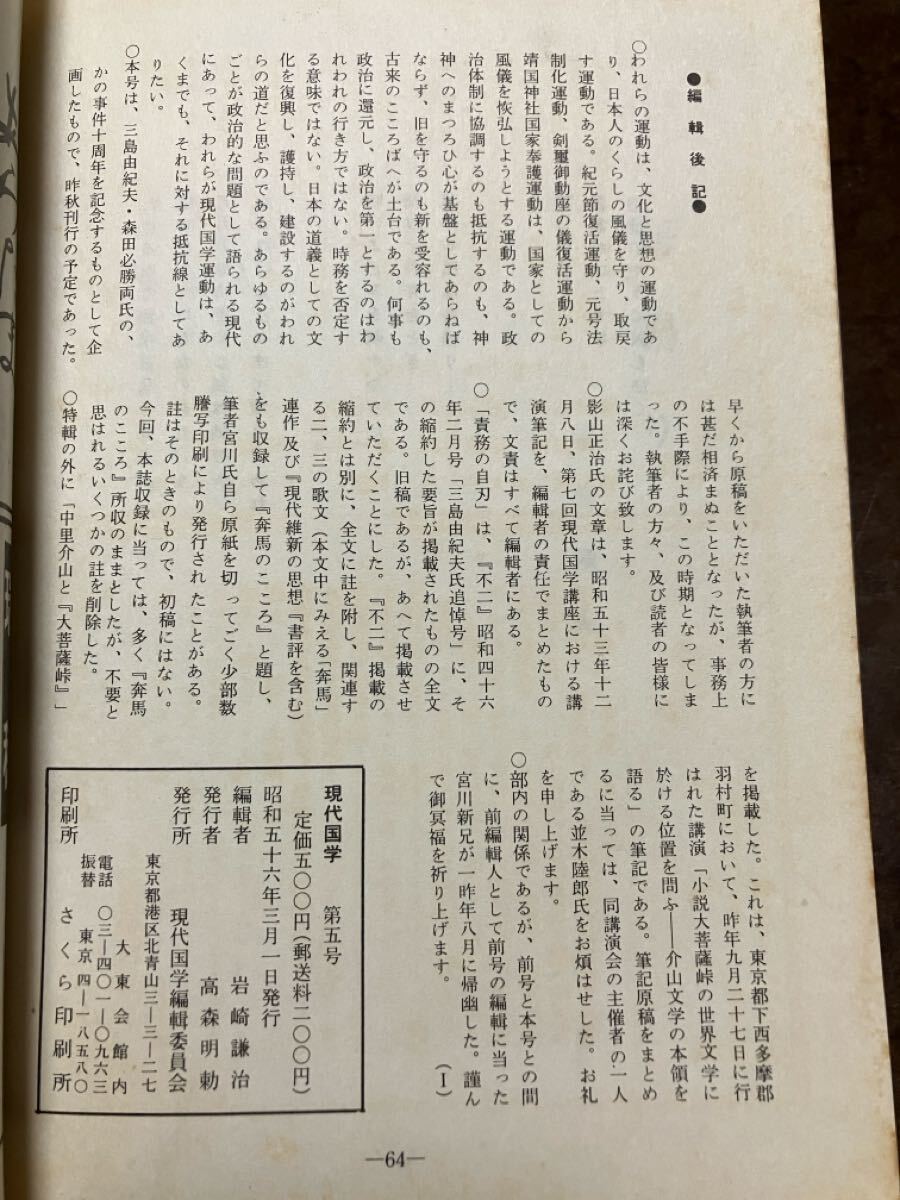 ●編輯後記●
○われらの運動は、文化と思想の運動であ
り、日本人のくらしの風儀を守り、取戻
す運動である。紀元節復活運動、元号法
制化運動、剣璽御動座の儀復活運動から
靖国神社国家奉護運動は、国家としての
風儀を恢弘しようとする運動である。政
治体制に協調するのも抵抗するのも、神
神へのまつろひ心が基盤としてあらねば
ならず、旧を守るのも新を受容れるのも、
古来のこころばへが土台である。何事も
政治に還元し、政治を第一とするのはわ
れわれの行き方ではない。時務を否定す
る意味ではない。日本の道義としての文
化を復興し、護持し、建設するのがわれ
らの道だと思ふのである。あらゆるもの
ごとが政治的な問題として語られる現代
にあって、われらが現代国学運動は、あ
くまでも、それに対する抵抗線としてあ
りたい。
○本号は、三島由紀夫・森田必勝両氏の、
かの事件十周年を記念するものとして企
画したもので、昨秋刊行の予定であった。
早くから原稿をいただいた執筆者の方に
は甚だ相済まぬこととなったが、事務上
の不手際により、この時期となってしま
った。執筆者の方々、及び読者の皆様に
は深くお詫び致します。
○影山正治氏の文章は、昭和五十三年十二
月八日、第七回現代国学講座における講
演筆記を、編輯者の責任でまとめたもの
で、文責はすべて編輯者にある。
○「責務の自刃」は、『不二』昭和四十六
年二月号「三島由紀夫氏追悼号」に、そ
の縮約した要旨が掲載されたものの全文
である。旧稿であるが、あへて掲載させ
ていただくことにした。『不二』掲載の
縮約とは別に、全文に註を附し、関連す
る二、三の歌文（本文中にみえる「奔馬」
連作及び『現代維新の思想』書評を含む）
をも収録して『奔馬のこころ』と題し、
筆者宮川氏自ら原紙を切ってごく少部数
謄写印刷により発行されたことがある。
註はそのときのもので、初稿にはない。
今回、本誌収録に当っては、多く『奔馬
のこころ』所収のままとしたが、不要と
思はれるいくつかの註を削除した。
○特輯の外に「中里介山と『大菩薩峠』」
を掲載した。これは、東京都下西多摩郡
羽村町において、昨年九月二十七日に行
はれた講演「小説大菩薩峠の世界文学に
於ける位置を問ふ――介山文学の本領を
語る」の筆記である。筆記原稿をまとめ
るに当っては、同講演会の主催者の一人
である並木陸郎氏をお煩はせした。お礼
を申し上げます。
○部内の関係であるが、前号と本号との間
に、前編輯人として前号の編輯に当った
宮川新兄が一昨年八月に帰幽した。謹ん
で御冥福を祈り上げます。　（I）
現代国学　第五号
定価五〇〇円（郵送料二〇〇円）
昭和五十六年三月一日発行
編輯者　岩崎謙治
発行者　高森明勅
発行所　現代国学編輯委員会
東京都港区北青山三―三―二七
大東会館内
電話　〇三―四〇一―〇九六三
振替　東京　四―一八五八〇
印刷所　さくら印刷所
―64―